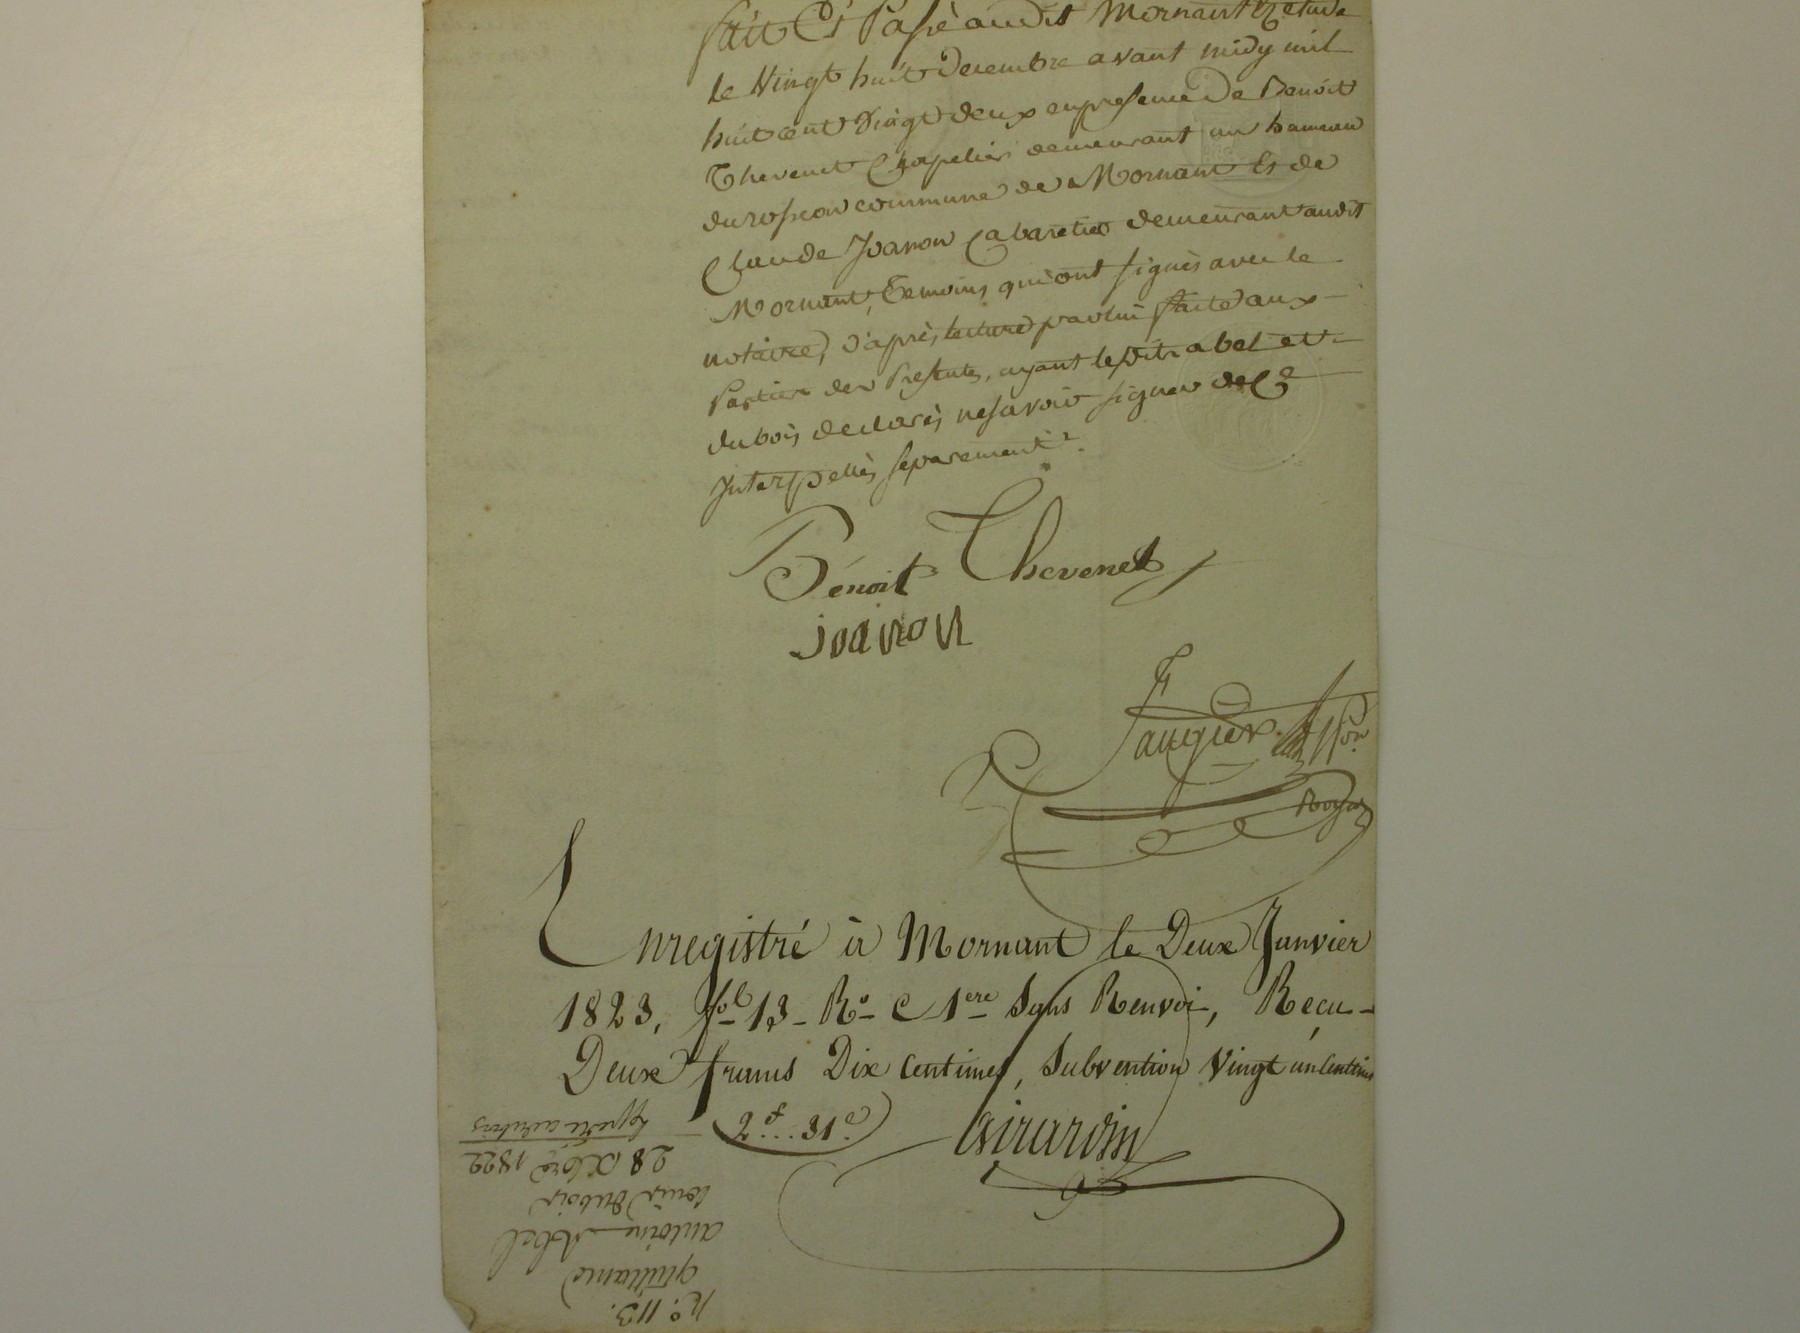 fait Et Passé audit Mornant Et etude
le Vingt huit Decembre avant midy mil
huit cent Vingt deux en presence De Benoit
Thevenet Chapelier demeurant au hameau
du rosseon commune de Mornant Et de
Claude Joanon Cabaretier demeurant audit
Mornant, Temoins qui ont signés avec le
notaire, d'après lecture par lui faite aux
Parties des Presentes, ayant lesdits abel et
dubois declarés ne savoir signer de Ce
Interpellés separement.
Bénoit Thevenet
joanon
Faugier
Enregistré à Mornant le Deux Janvier
1823, fol 13 Ro C 1ere Sans Renvoi, Reçu
Deux francs Dix Centimes, Subvention Vingt un Centimes
2f....31c.
Girardin
no. 113.
quittance
antoine Abel
Louis Dubois
28 Xbre 1822